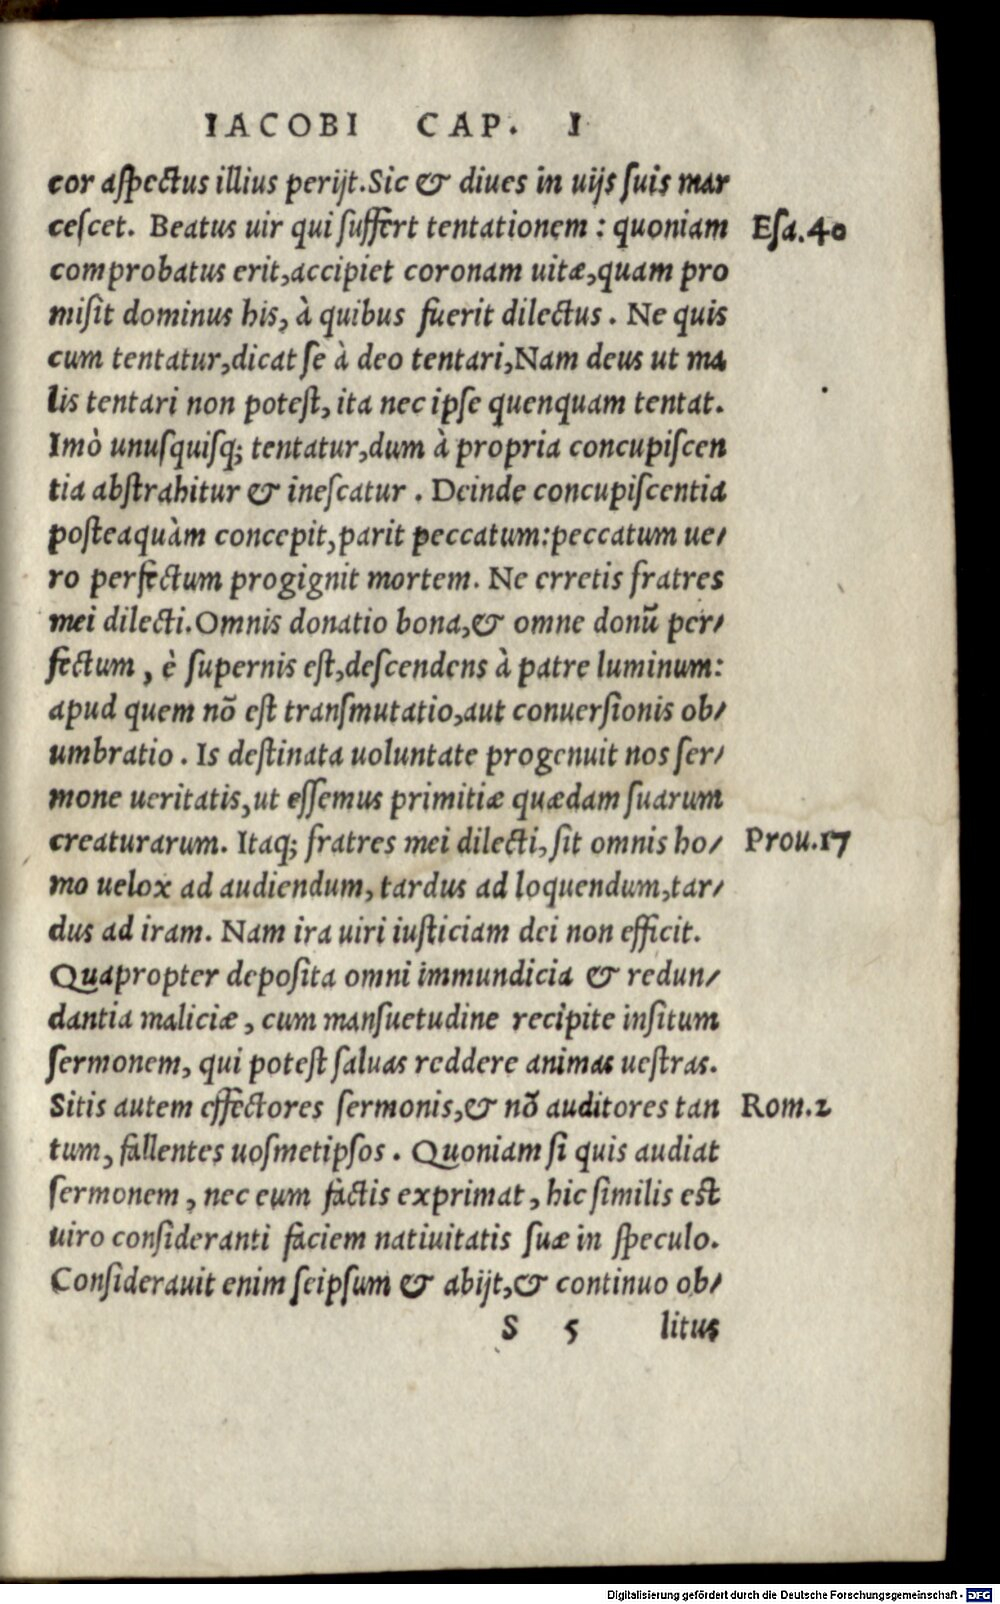 IACOBI CAP. I
cor aſpectus illius perijt. Sic & diues in uijs ſuis mar
ceſcet. Beatus uir qui ſuffert tentationem : quoniam
Eſa.40
comprobatus erit, accipiet coronam uitæ, quam pro
miſit dominus his, à quibus fuerit dilectus. Ne quis
cum tentatur, dicat ſe à deo tentari, Nam deus ut ma
lis tentari non poteſt, ita nec ipſe quenquam tentat.
Imò unuſquiſq; tentatur, dum à propria concupiſcen
tia abſtrahitur & ineſcatur. Deinde concupiſcentia
poſteaquàm concepit, parit peccatum: peccatum ue/
ro perfectum progignit mortem. Ne erretis fratres
mei dilecti. Omnis donatio bona, & omne donũ per/
fectum, è ſupernis eſt, deſcendens à patre luminum:
apud quem nõ eſt tranſmutatio, aut conuerſionis ob/
umbratio. Is deſtinata uoluntate progenuit nos ſer/
mone ueritatis, ut eſſemus primitiæ quædam ſuarum
creaturarum. Itaq; fratres mei dilecti, ſit omnis ho/
Prou.17
mo uelox ad audiendum, tardus ad loquendum, tar/
dus ad iram. Nam ira uiri iuſticiam dei non efficit.
Quapropter depoſita omni immundicia & redun/
dantia maliciæ, cum manſuetudine recipite inſitum
ſermonem, qui poteſt ſaluas reddere animas ueſtras.
Sitis autem effectores ſermonis, & nõ auditores tan
Rom.2
tum, fallentes uoſmetipſos. Quoniam ſi quis audiat
ſermonem, nec eum factis exprimat, hic ſimilis eſt
uiro conſideranti faciem natiuitatis ſuæ in ſpeculo.
Conſiderauit enim ſeipſum & abijt, & continuo ob/
S 5 litus
Digitalisierung gefördert durch die Deutsche Forschungsgemeinschaft - DFG